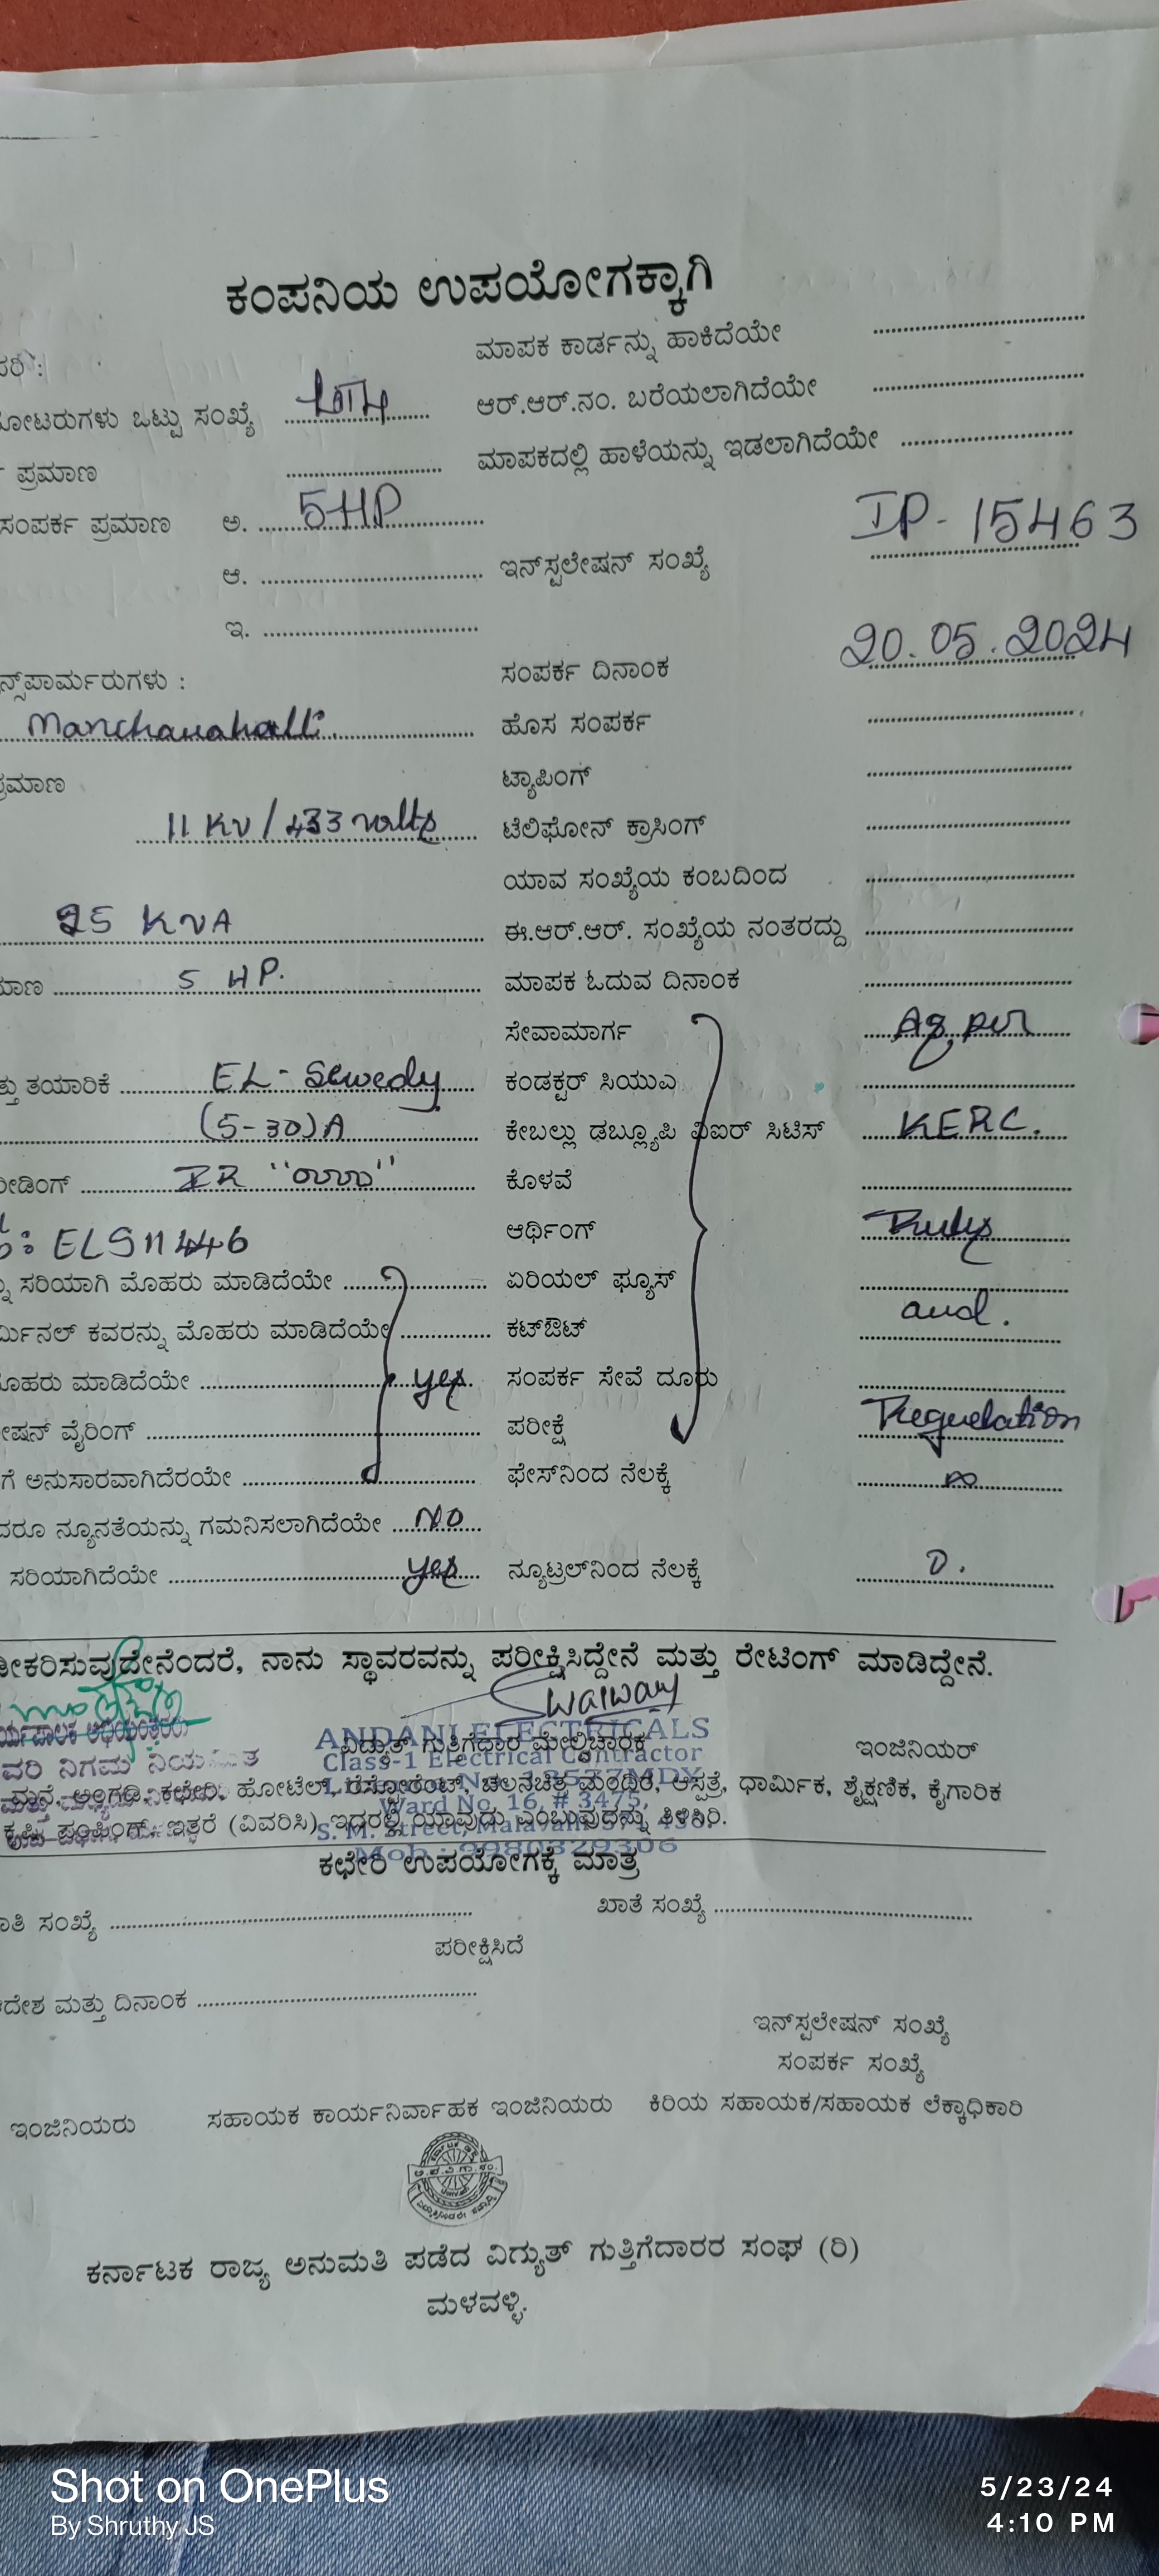 ಕಂಪನಿಯ ಉಪಯೋಗಕ್ಕಾಗಿ
ಮಾಪಕ ಕಾರ್ಡನ್ನು ಹಾಕಿದೆಯೇ
ಒಟ್ಟು ಸಂಖ್ಯೆ ಆರ್.ಆರ್.ನಂ. ಬರೆಯಲಾಗಿದೆಯೇ
ಪ್ರಮಾಣ ಮಾಪಕದಲ್ಲಿ ಹಾಳೆಯನ್ನು ಇಡಲಾಗಿದೆಯೇ
ಸಂಪರ್ಕ ಪ್ರಮಾಣ ಅ. 5HP
ಆ. ಇನ್‌ಸ್ಟಲೇಷನ್ ಸಂಖ್ಯೆ IP-15463
ಇ.
ಸಂಪರ್ಕ ದಿನಾಂಕ 20.05.2024
Manchanahalli. ಹೊಸ ಸಂಪರ್ಕ
ಟ್ಯಾಪಿಂಗ್
11 KV / 433 volts ಟೆಲಿಫೋನ್ ಕ್ರಾಸಿಂಗ್
ಯಾವ ಸಂಖ್ಯೆಯ ಕಂಬದಿಂದ
25 KVA ಈ.ಆರ್.ಆರ್. ಸಂಖ್ಯೆಯ ನಂತರದ್ದು
5 HP. ಮಾಪಕ ಓದುವ ದಿನಾಂಕ
ಸೇವಾಮಾರ್ಗ As per
ತಯಾರಿಕೆ EL-Sewedy ಕಂಡಕ್ಟರ್ ಸಿಯುಎ
(5-30)A ಕೇಬಲ್ಲು ಡಬ್ಲ್ಯೂಪಿ ವಿಐಆರ್ ಸಿಟಿಸ್ KERC.
IR ಕೊಳವೆ
ELS11446 ಆರ್ಥಿಂಗ್ Rules
ಸರಿಯಾಗಿ ಮೊಹರು ಮಾಡಿದೆಯೇ ಏರಿಯಲ್ ಫ್ಯೂಸ್
ಕವರನ್ನು ಮೊಹರು ಮಾಡಿದೆಯೇ ಕಟ್‌ಔಟ್ and.
ಮಾಡಿದೆಯೇ yes. ಸಂಪರ್ಕ ಸೇವೆ ದೂರು
ವೈರಿಂಗ್ ಪರೀಕ್ಷೆ Reguelation
ಅನುಸಾರವಾಗಿದೆರಯೇ ಫೇಸ್‌ನಿಂದ ನೆಲಕ್ಕೆ ∞
ನ್ಯೂನತೆಯನ್ನು ಗಮನಿಸಲಾಗಿದೆಯೇ NO
ಸರಿಯಾಗಿದೆಯೇ yes ನ್ಯೂಟ್ರಲ್‌ನಿಂದ ನೆಲಕ್ಕೆ 0.
ನಾನು ಸ್ಥಾವರವನ್ನು ಪರೀಕ್ಷಿಸಿದ್ದೇನೆ ಮತ್ತು ರೇಟಿಂಗ್ ಮಾಡಿದ್ದೇನೆ.
ANDANI ELECTRICALS
ವಿದ್ಯುತ್ ಗುತ್ತಿಗೆದಾರ ಮೇಲ್ವಿಚಾರಕ ಇಂಜಿನಿಯರ್
Class-1 Electrical Contractor
ಮನೆ, ಅಂಗಡಿ, ಕಛೇರಿ, ಹೋಟೆಲ್, ರೆಸ್ಟೋರೆಂಟ್, ಚಲನಚಿತ್ರ ಮಂದಿರ, ಆಸ್ಪತ್ರೆ, ಧಾರ್ಮಿಕ, ಶೈಕ್ಷಣಿಕ, ಕೈಗಾರಿಕ
Ward No. 16, # 3475,
ಪಂಪಿಂಗ್, ಇತರೆ (ವಿವರಿಸಿ) ಇದರಲ್ಲಿ ಯಾವುದು ಎಂಬುವುದನ್ನು ತಿಳಿಸಿರಿ.
S. M. Street, Malavalli
Mob : 9980329306
ಕಛೇರಿ ಉಪಯೋಗಕ್ಕೆ ಮಾತ್ರ
ಸಂಖ್ಯೆ ಖಾತೆ ಸಂಖ್ಯೆ
ಪರೀಕ್ಷಿಸಿದೆ
ಮತ್ತು ದಿನಾಂಕ
ಇನ್‌ಸ್ಟಲೇಷನ್ ಸಂಖ್ಯೆ
ಸಂಪರ್ಕ ಸಂಖ್ಯೆ
ಇಂಜಿನಿಯರು ಸಹಾಯಕ ಕಾರ್ಯನಿರ್ವಾಹಕ ಇಂಜಿನಿಯರು ಕಿರಿಯ ಸಹಾಯಕ/ಸಹಾಯಕ ಲೆಕ್ಕಾಧಿಕಾರಿ
ಕರ್ನಾಟಕ ರಾಜ್ಯ ಅನುಮತಿ ಪಡೆದ ವಿದ್ಯುತ್ ಗುತ್ತಿಗೆದಾರರ ಸಂಘ (ರಿ)
ಮಳವಳ್ಳಿ.
Shot on OnePlus
By Shruthy JS
5/23/24
4:10 PM